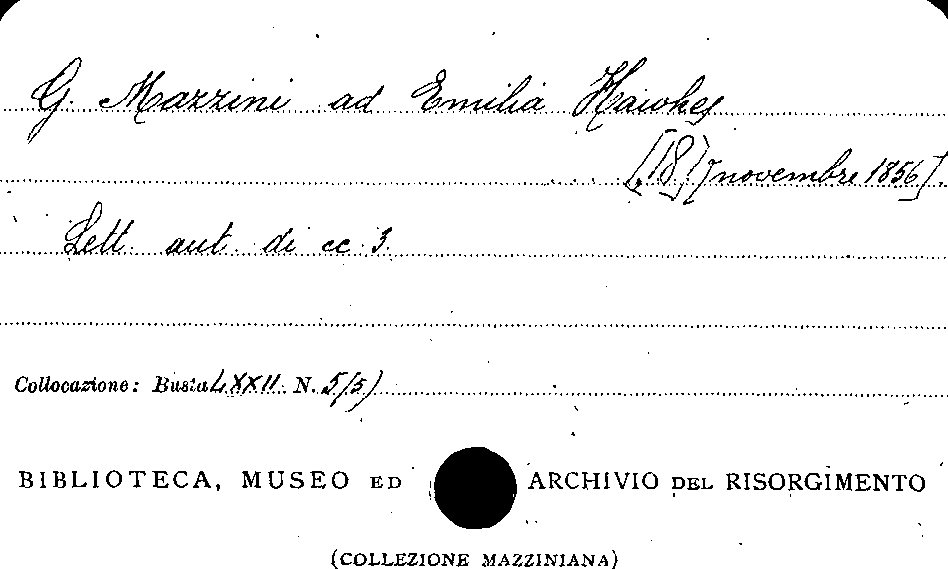 G. Mazzini ad Emilia Hawkes
[18] [novembre 1856].
Lett. aut. di cc. 3.
Collocazione: Busta LXXII. N. 5/5)
BIBLIOTECA, MUSEO ED ARCHIVIO DEL RISORGIMENTO
(COLLEZIONE MAZZINIANA)